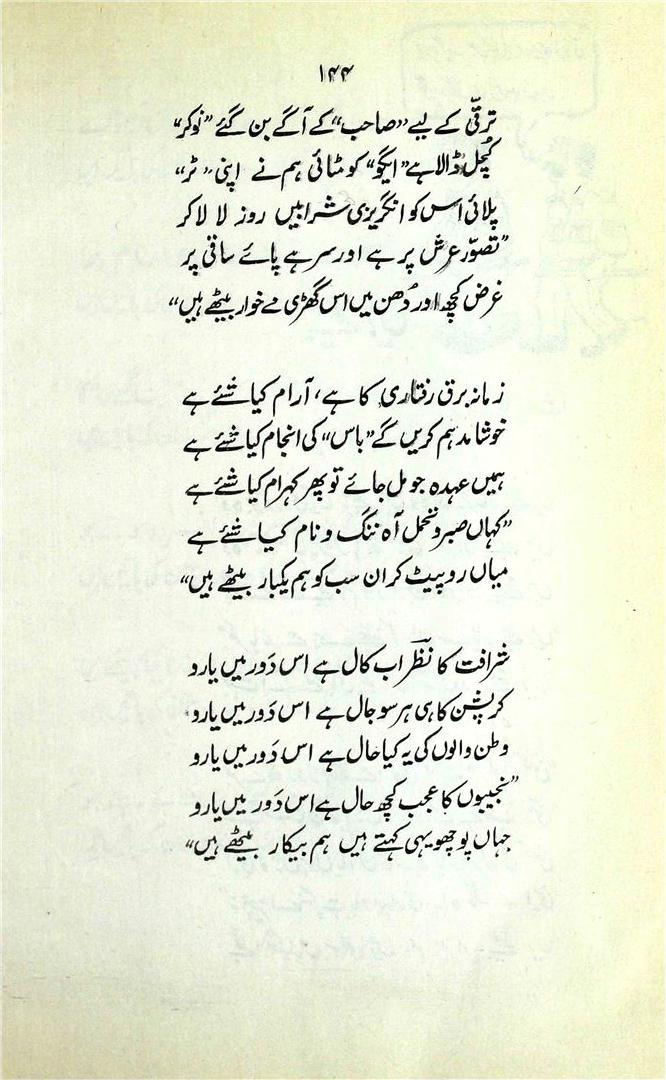 ۱۴۴
ترقّی کے لیے "صاحب" کے آگے بن گئے "نوکر"
کُچل ڈالا ہے "ایگو" کو مٹائی ہم نے اپنی "ٹر"
پلائی اس کو انگریزی شرابیں روز لا لا کر
"تصوّر عرش پر ہے اور سر ہے پائے ساقی پر
غرض کچھ اور دُھن میں اس گھڑی مے خوار بیٹھے ہیں"
زمانہ برق رفتاری کا ہے، آرام کیا شئے ہے
خوشامد ہم کریں گے "باس" کی انجام کیا شئے ہے
ہمیں عہدہ جو مل جائے تو پھر کہرام کیا شئے ہے
"کہاں صبر و تحمل آہ ننگ و نام کیا شئے ہے
میاں رو پیٹ کر ان سب کو ہم یکبار بیٹھے ہیں"
شرافت کا نظر اب کال ہے اس دَور میں یارو
کرپشن کا ہی ہر سو جال ہے اس دَور میں یارو
وطن والوں کی یہ کیا حال ہے اس دَور میں یارو
"نجیبوں کا عجب کچھ حال ہے اس دَور میں یارو
جہاں پوچھو یہی کہتے ہیں ہم بیکار بیٹھے ہیں"